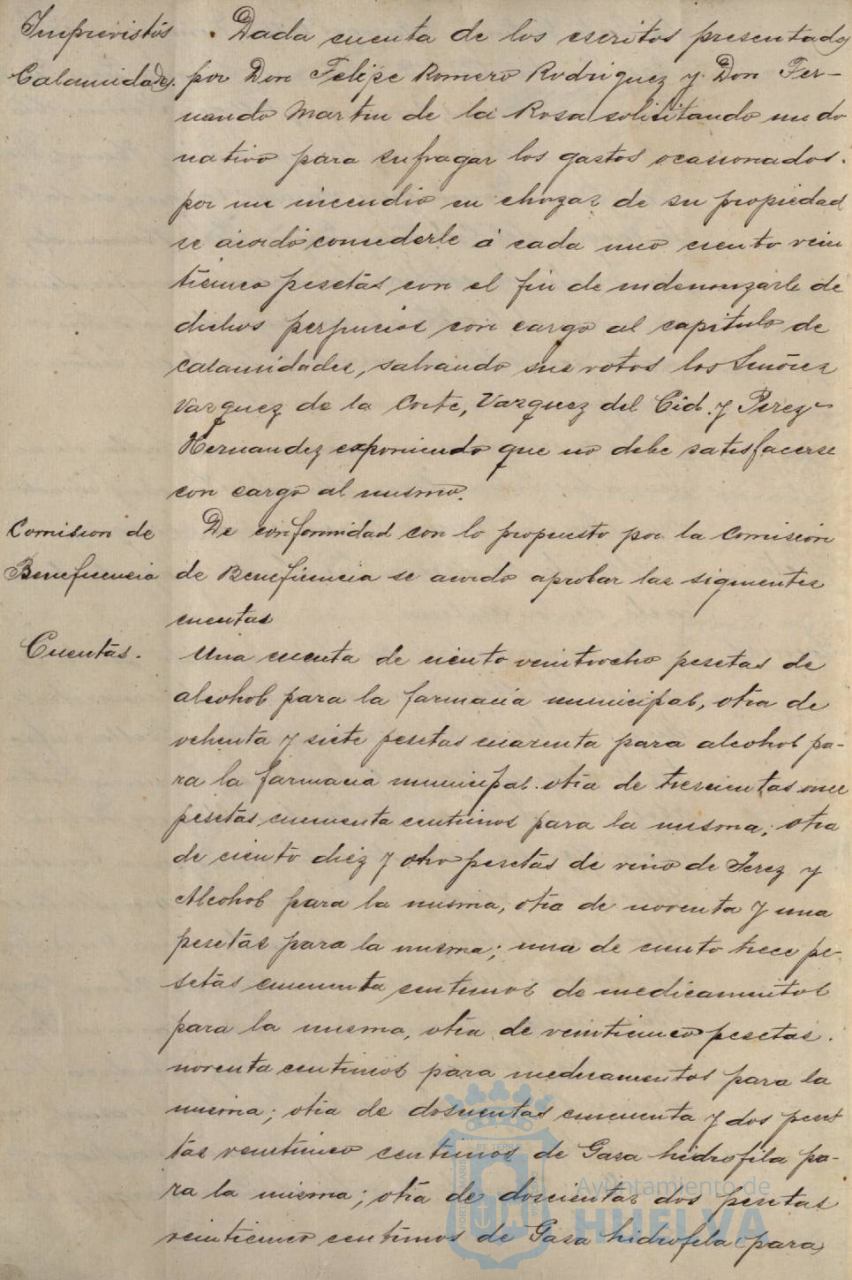 Imprevistos
Calamidades.
Dada cuenta de los escritos presentados
por Don Felipe Romero Rodriguez y Don Fer-
nando Martin de la Rosa solicitando un do
nativo para sufragar los gastos ocasionados.
por un incendio en chozas de su propiedad
se acordó concederle á cada uno ciento vein
ticinco pesetas con el fin de indemnizarle de
dichos perjuicios con cargo al capitulo de
calamidades, salvando sus votos los Señores
Vazquez de la Corte, Vazquez del Cid y Perez
Hernandez exponiendo que no debe satisfacerse
con cargo al mismo.
Comision de
Beneficencia
De conformidad con lo propuesto por la Comisión
de Beneficencia se acordo aprobar las siguientes
cuentas
Cuentas.
Una cuenta de ciento veintiocho pesetas de
alcohol para la farmacia municipal, otra de
ochenta y siete pesetas cuarenta para alcohol pa-
ra la farmacia municipal. otra de trescientas once
pesetas cincuenta centimos para la misma; otra
de ciento diez y ocho pesetas de vino de Jerez y
Alcohol para la misma, otra de noventa y una
pesetas para la misma; una de ciento trece pe-
setas cincuenta centimos de medicamentos
para la misma, otra de veinticinco pesetas.
noventa centimos para medicamentos para la
misma; otra de doscientas cincuenta y dos pese
tas veinticinco centimos de Gasa hidrofila pa-
ra la misma; otra de doscientas dos pesetas
veinticinco centimos de Gasa hidrofila para
Ayuntamiento de
HUELVA